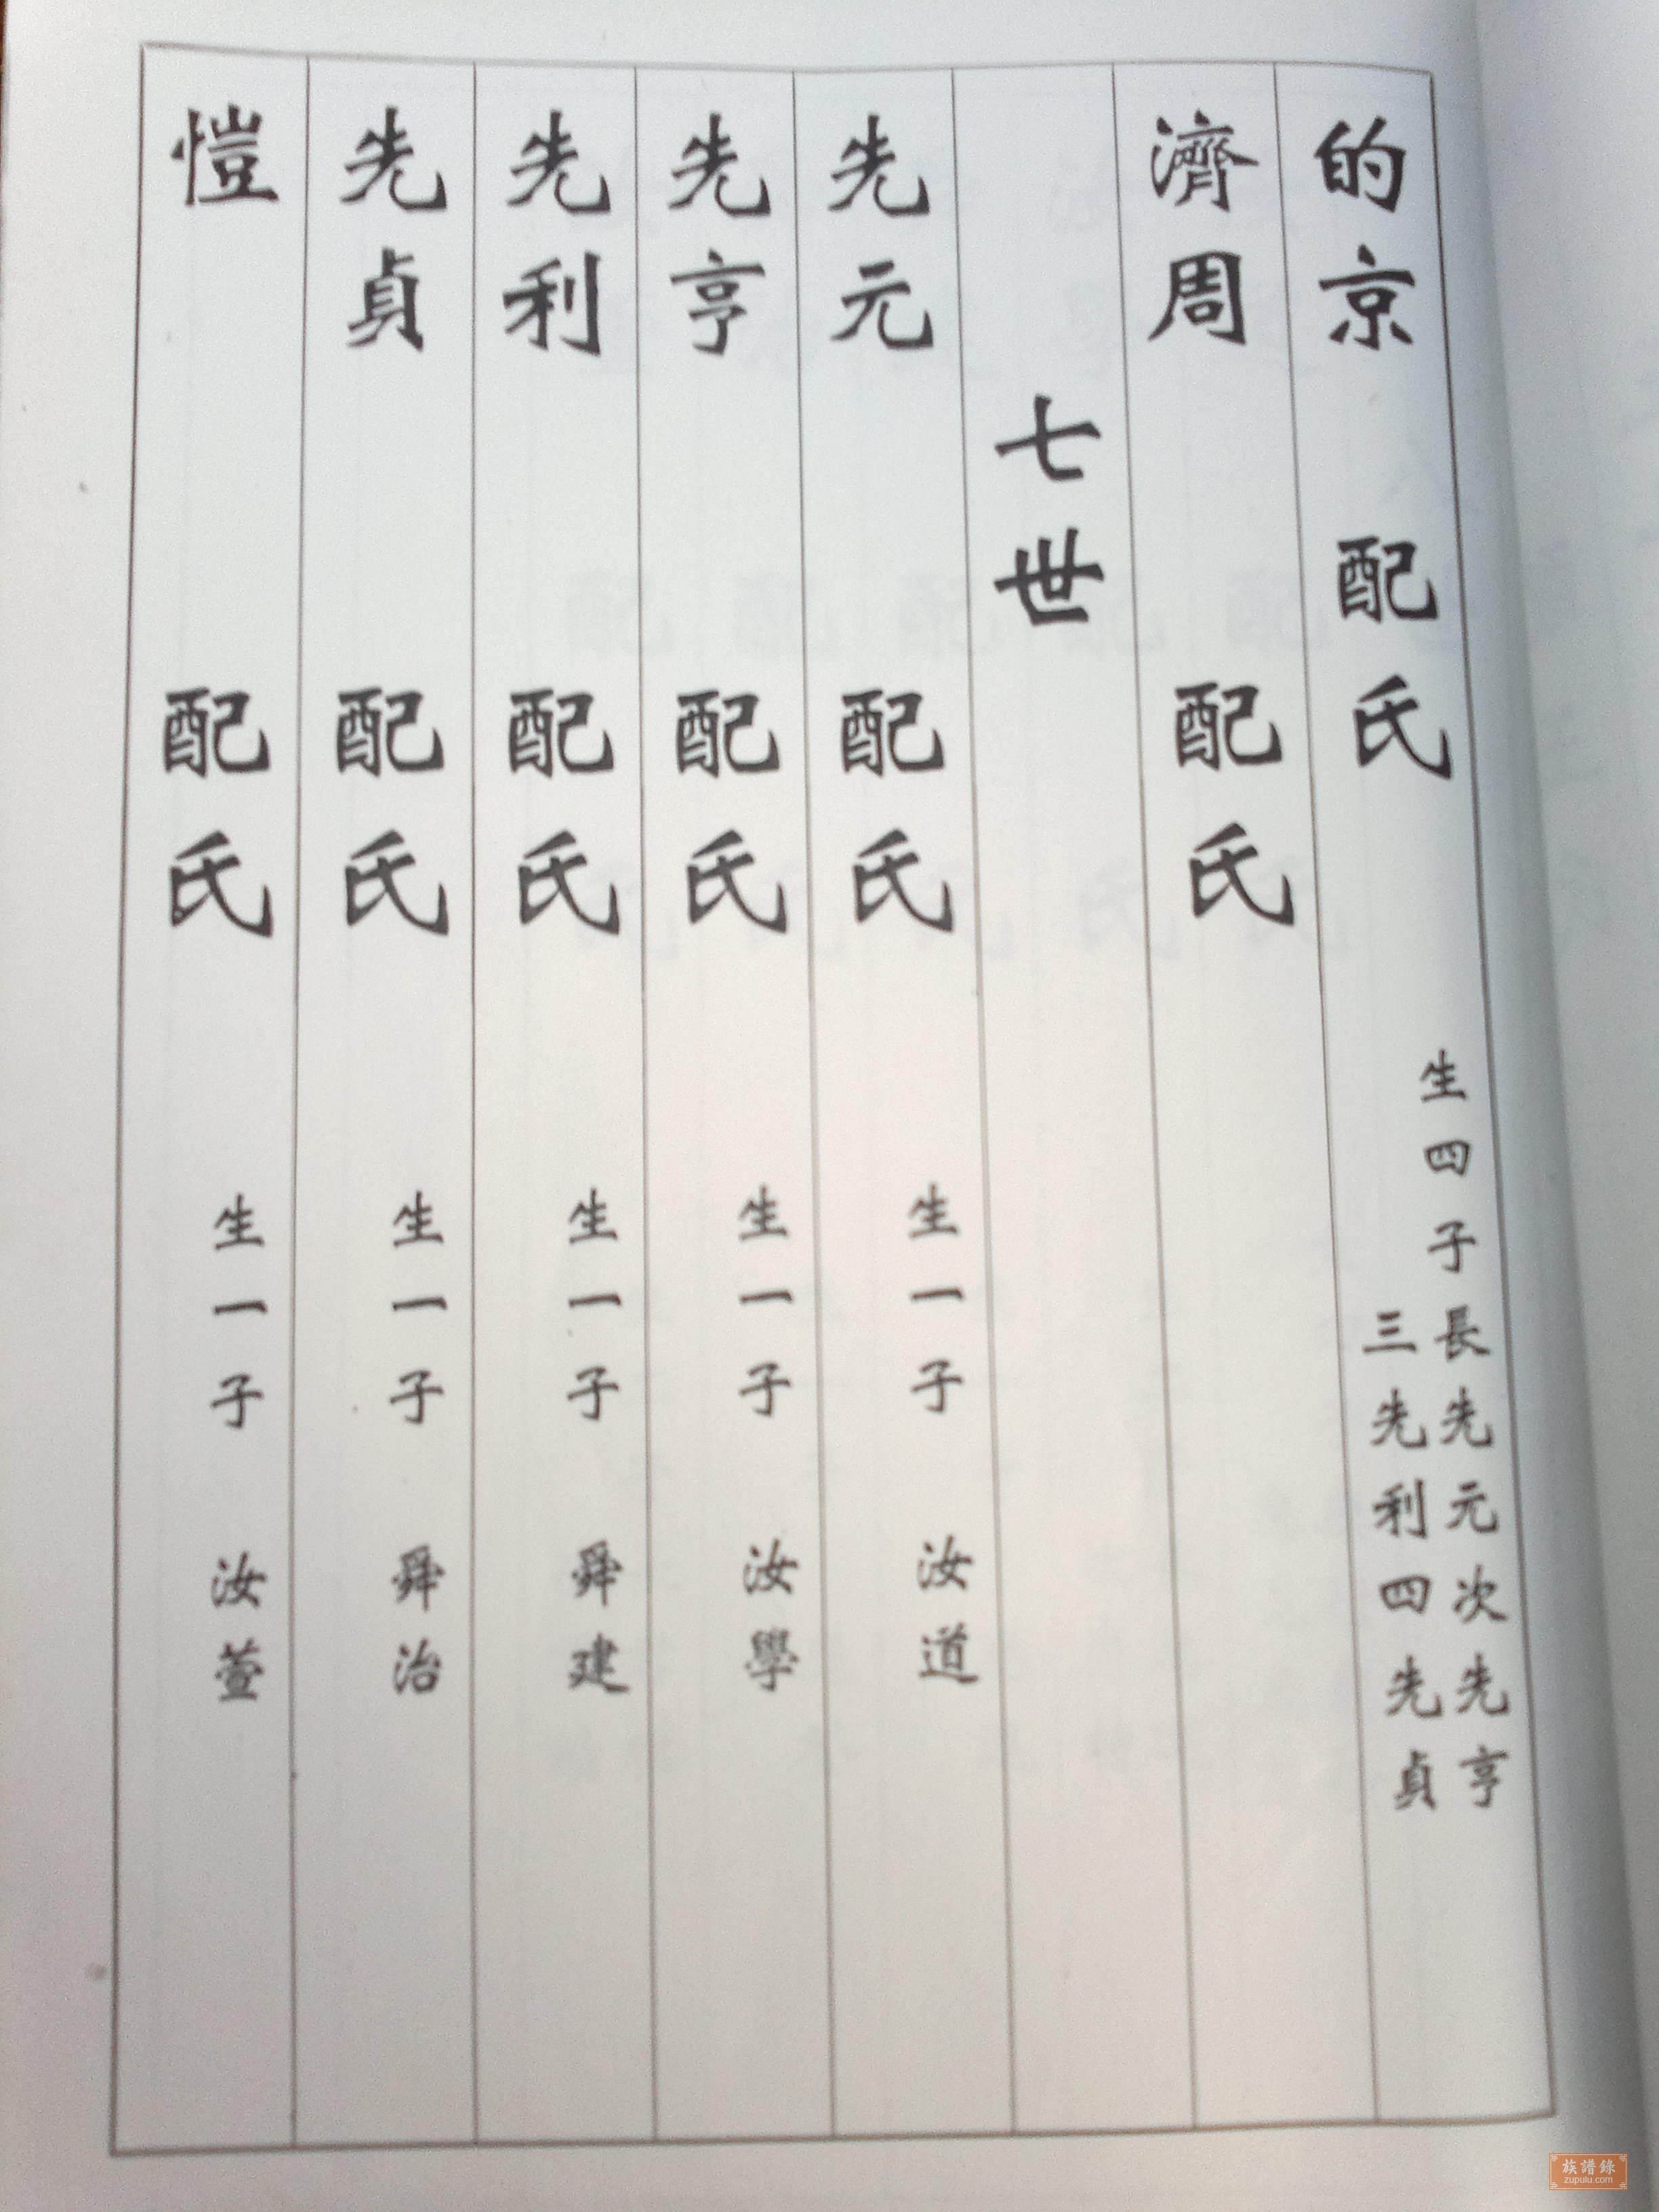 的京 配氏 生四子長先元次先亨
三先利四先貞
濟周 配氏
七世
先元 配氏 生一子 汝道
先亨 配氏 生一子 汝學
先利 配氏 生一子 舜建
先貞 配氏 生一子 舜治
愷 配氏 生一子 汝萱
族譜錄
zupulu.com